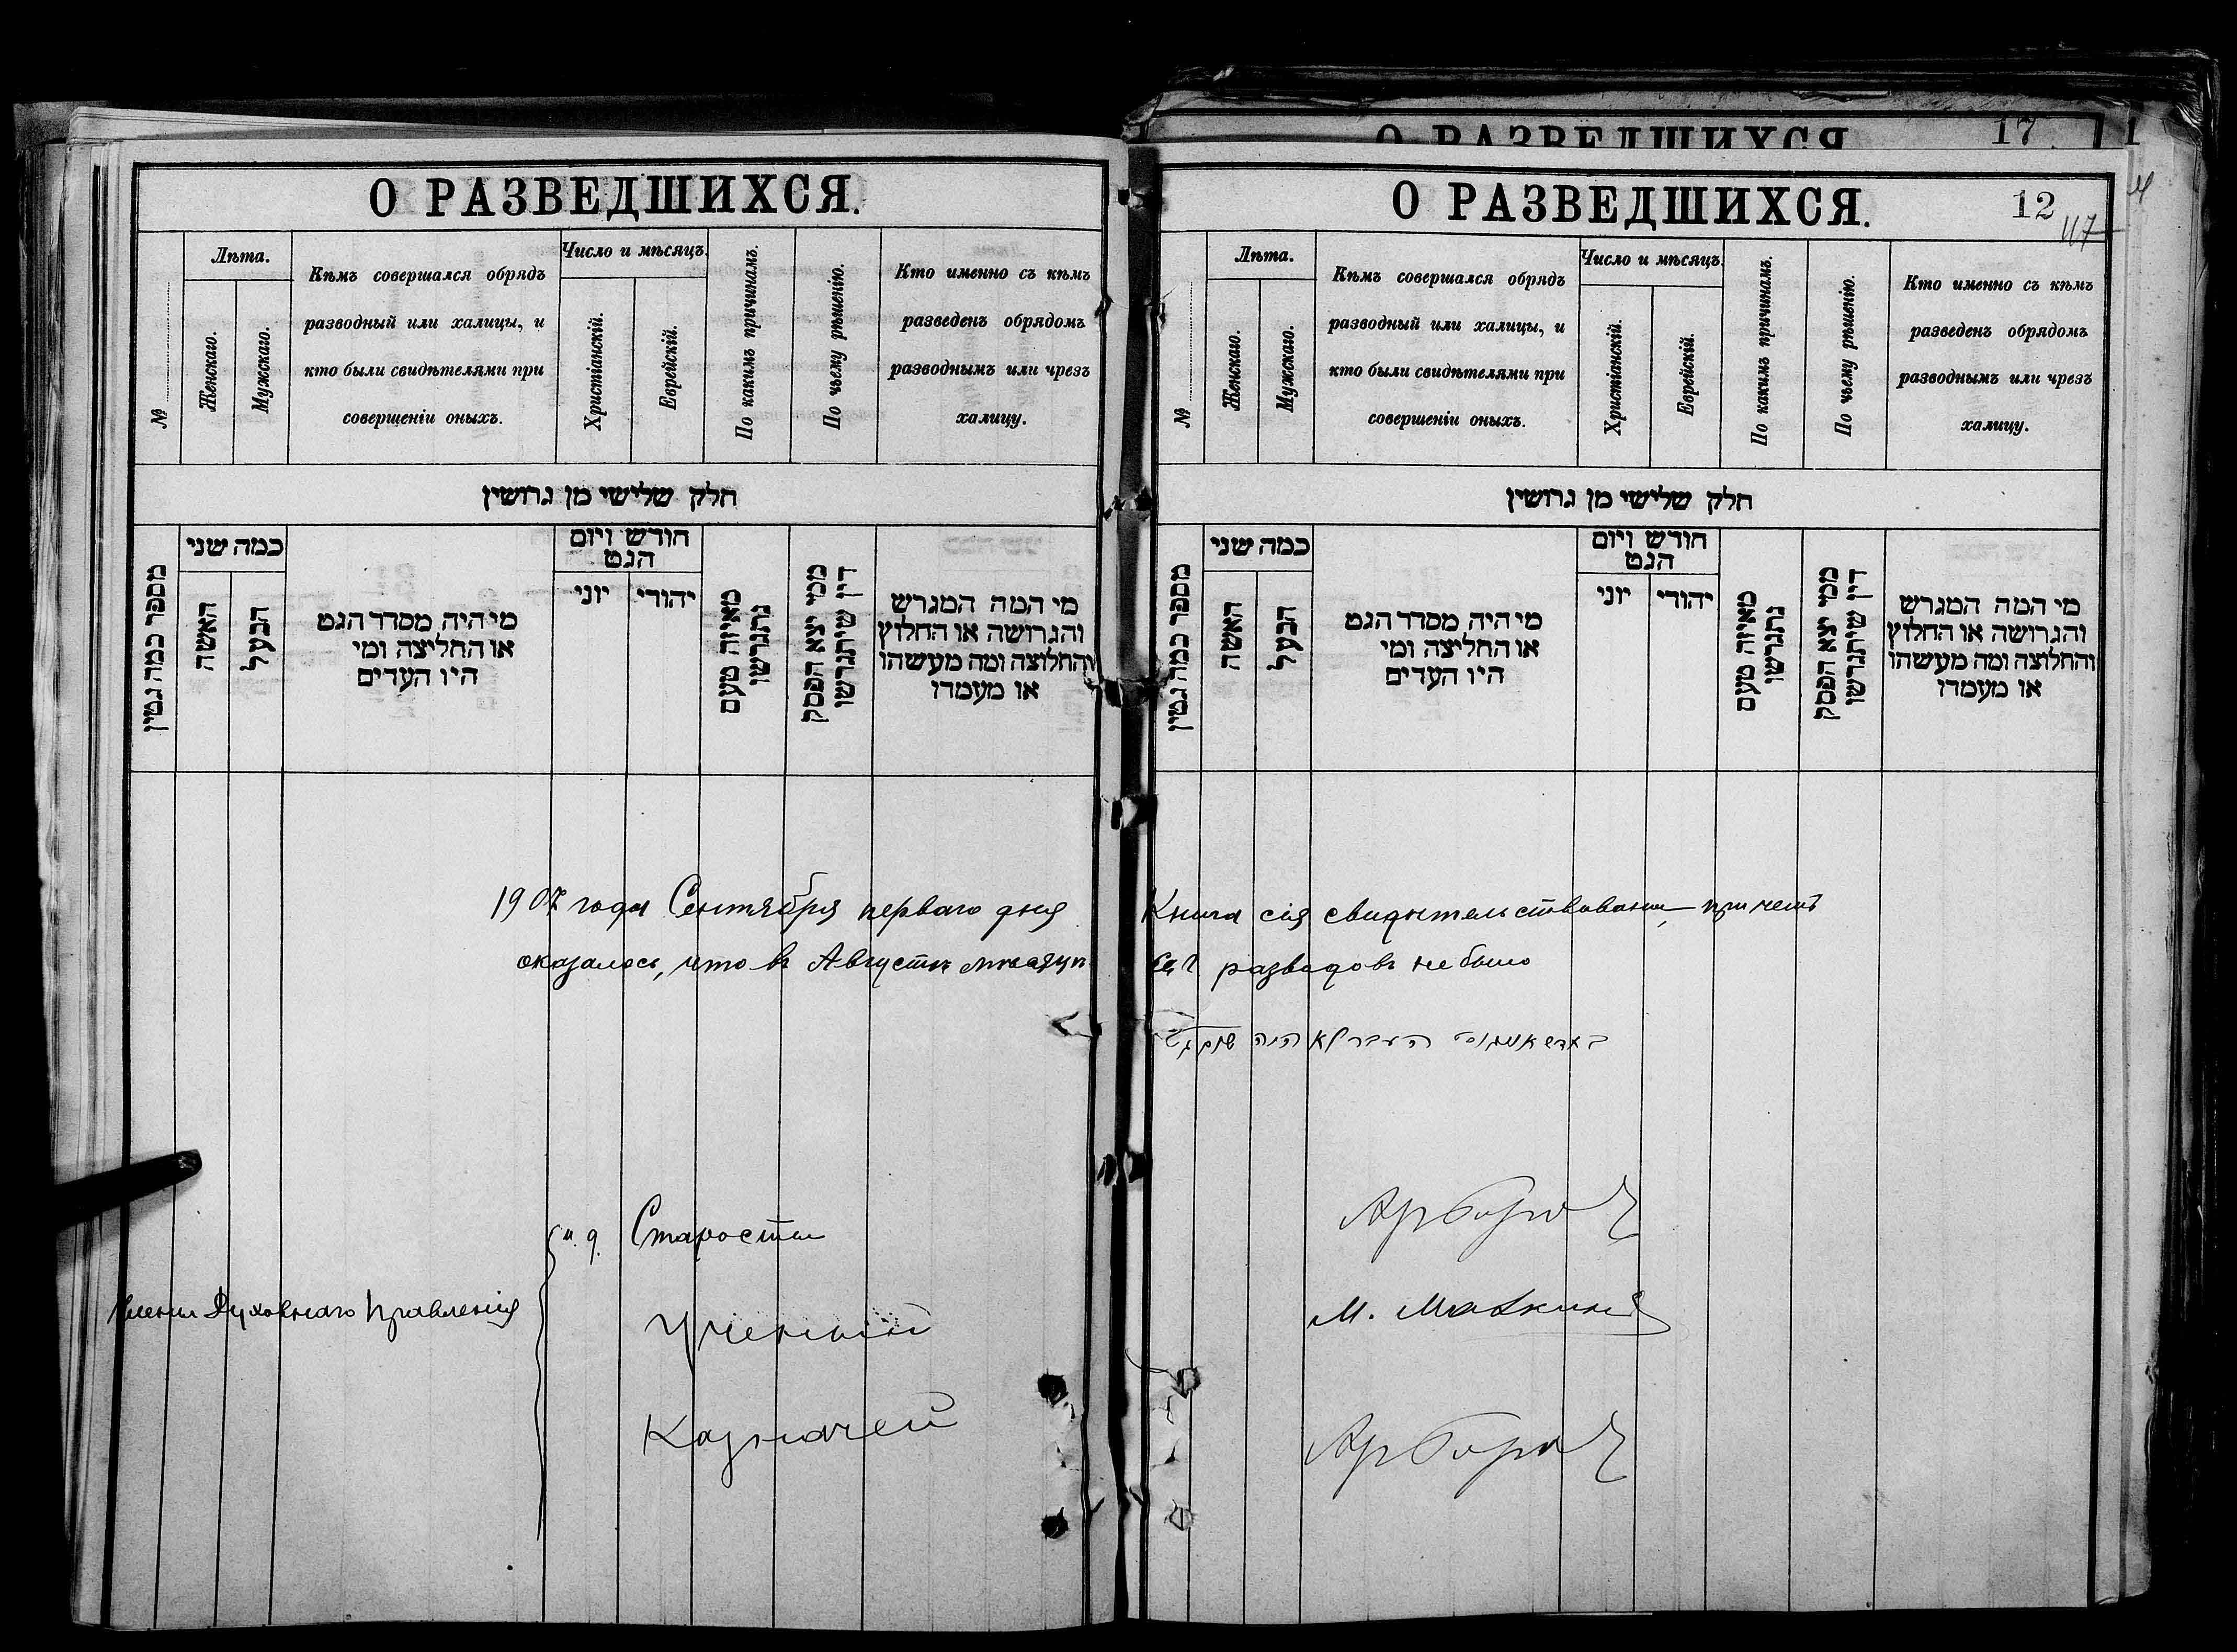 О РАЗВЕДШИХСЯ.
№
Лѣта.
Женскаго.
Мужскаго.
Кѣмъ совершался обрядъ
разводный или халицы, и
кто были свидѣтелями при
совершеніи оныхъ.
Число и мѣсяцъ.
Христіанскій.
Еврейскій.
По какимъ причинамъ.
По чьему рѣшенію.
Кто именно съ кѣмъ
разведенъ обрядомъ
разводнымъ или чрезъ
халицу.
חלק שלישי מן גרושין
מספר כמה גטין
כמה שני
האשה
הבעל
מי היה מסדר הגט
או החליצה ומי
היו העדים
חודש ויום
הגט
יוני
יהודי
מאיזה טעם
נתגרשו
ממי יצא הפסק
דין שיתגרשו
מי המה המגרש
והגרושה או החלוץ
והחלוצה ומה מעשהו
או מעמדו
1907 года Сентября перваго дня
оказалось, что въ Августѣ мѣсяцѣ
Члены Духовнаго Правленія
и. д. Старосты
Ученый
Казначей
О РАЗВЕДШИХСЯ
17
О РАЗВЕДШИХСЯ.
12
117
№
Лѣта.
Женскаго.
Мужскаго.
Кѣмъ совершался обрядъ
разводный или халицы, и
кто были свидѣтелями при
совершеніи оныхъ.
Число и мѣсяцъ.
Христіанскій.
Еврейскій.
По какимъ причинамъ.
По чьему рѣшенію.
Кто именно съ кѣмъ
разведенъ обрядомъ
разводнымъ или чрезъ
халицу.
חלק שלישי מן גרושין
מספר כמה גטין
כמה שני
האשה
הבעל
מי היה מסדר הגט
או החליצה ומי
היו העדים
חודש ויום
הגט
יוני
יהודי
מאיזה טעם
נתגרשו
ממי יצא הפסק
דין שיתגרשו
מי המה המגרש
והגרושה או החלוץ
והחלוצה ומה מעשהו
או מעמדו
Книга сія свидѣтельствована, при чемъ
разводовъ не было
לא היה שום
М.